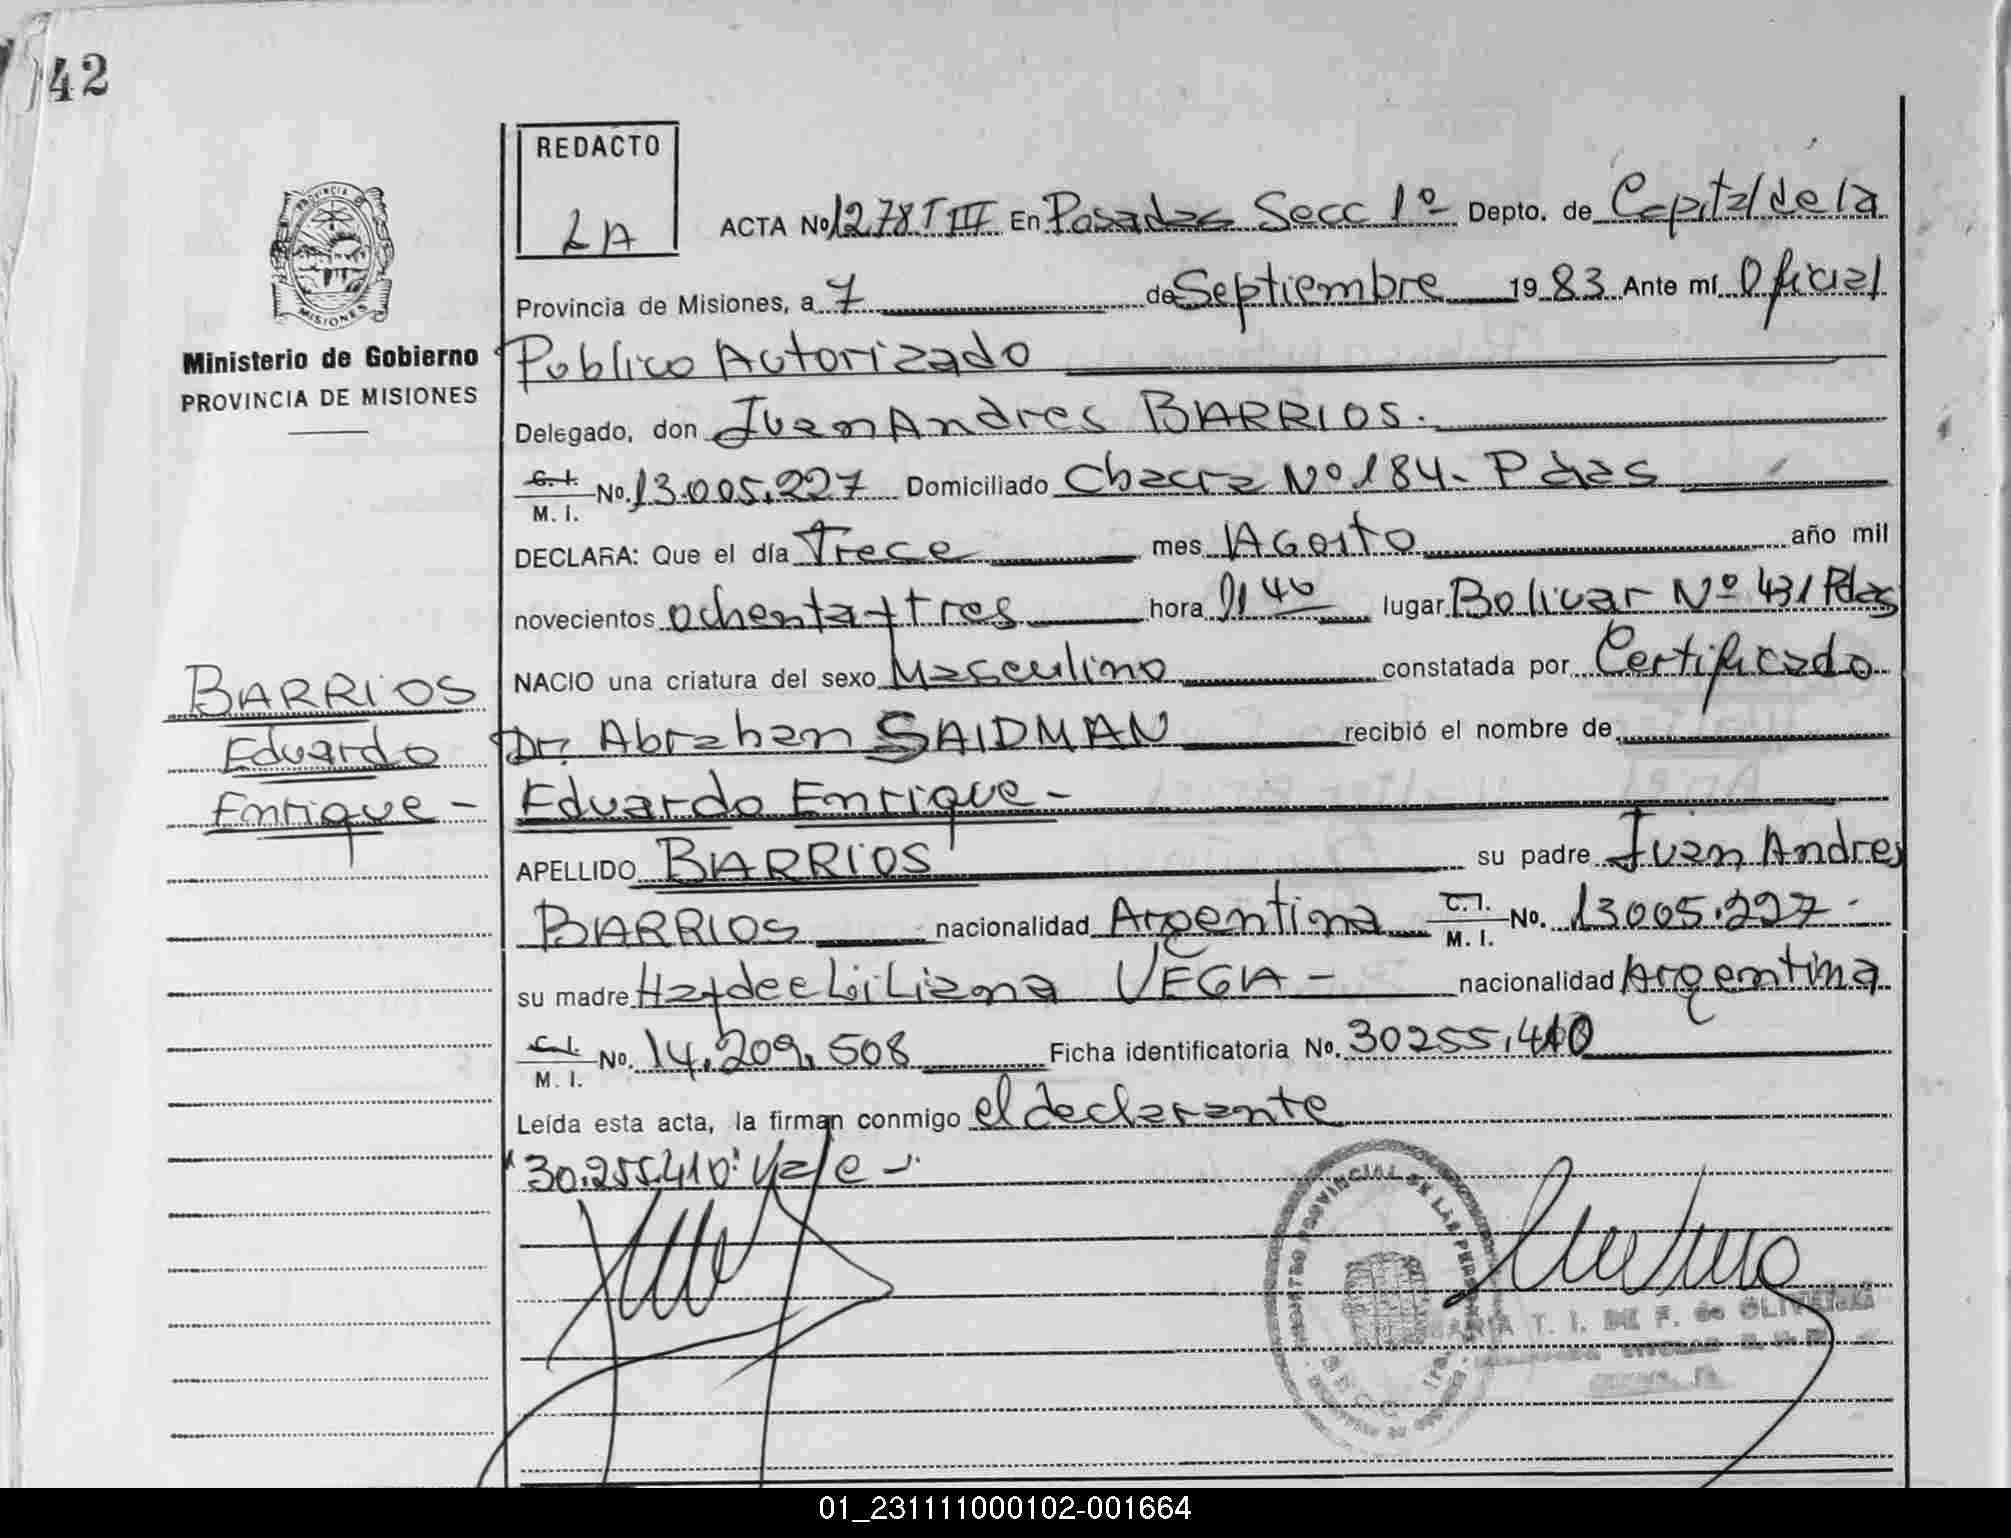 42
REDACTO
LA
PROVINCIA DE
MISIONES
Ministerio de Gobierno
PROVINCIA DE MISIONES
ACTA Nº 1278 T III En Posadas Secc 1º Depto. de Capital de la
Provincia de Misiones, a 7 de Septiembre 1983 Ante mí Oficial
Publico Autorizado
Delegado, don Juan Andres BARRIOS.
C. I. M. I. No. 13.005.227 Domiciliado Chacra Nº 184 - Pdas
DECLARA: Que el día Trece mes Agosto año mil
novecientos ochenta y tres hora lugar Bolivar Nº 431 Pdas
NACIO una criatura del sexo Masculino constatada por Certificado
Dr. Abraham SAIDMAN recibió el nombre de
Eduardo Enrique -
APELLIDO BARRIOS su padre Juan Andres
BARRIOS nacionalidad Argentina C. I. M. I. No. 13.005.227 -
su madre Haydee Liliana VEGA - nacionalidad Argentina
C. I. M. I. No. 14.209.508 Ficha identificatoria No. 30255.410
Leída esta acta, la firman conmigo el declarante
"30.255.410" Vale -
BARRIOS
Eduardo
Enrique -
PROVINCIAL DE LAS PERSONAS
T. I. DE F. de OLIVEIRA
01_231111000102-001664